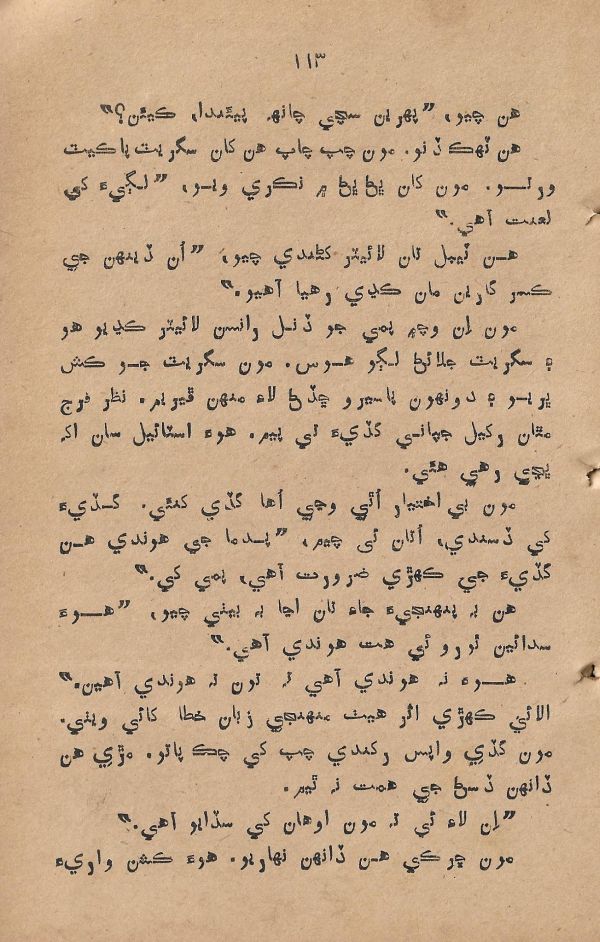 ١١٣
هن چيو، ”پهرين سچي چانهه پيئندا، ڪيئن؟“
هن ٽهڪ ڏنو. مون چپ چاپ هن کان سگريٽ پاڪيٽ
ورتو. مون کان ڀڻ ڀڻ ۾ نڪري ويو، ”لڳيءَ کي
لعنت آهي.“
هن ٽيبل تان لائيٽر کڻندي چيو، ”اُن ڏينهن جي
ڪسر گارين مان ڪڍي رهيا آهيو.“
مون اِن وچ ۾ پمي جو ڏنل رانسن لائيٽر ڪڍيو هو
۽ سگريٽ جلائڻ لڳو هوس. مون سگريٽ جو ڪش
ڀريو ۽ دونهون پاسيرو ڇڏڻ لاءِ منهن ڦيريم. نظر فرج
مٿان رکيل جپاني گڏيءَ تي پيم. هوءَ اسٽائيل سان اک
ڀڃي رهي هئي.
مون بي اختيار اُٿي وڃي اُها گڏي کنئي. گڏيءَ
کي ڏسندي، اُتان ئي چيم، ”پدما جي هوندي هن
گڏيءَ جي ڪهڙي ضرورت آهي، پمي کي.“
هن به پنهنجيءَ جاءِ تان اڃا به بيٺي چيو، ”هوءَ
سدائين ٿورو ئي هت هوندي آهي.“
هوءَ نه هوندي آهي ته تون ته هوندي آهين.“
الائي ڪهڙي اثر هيٺ منهنجي زبان خطا کائي ويئي.
مون گڏي واپس رکندي چپ کي چڪ پاتو. مڙي هن
ڏانهن ڏسڻ جي همت نه ٿيم.
”اِن لاءِ ئي ته مون اوهان کي سڏايو آهي.“
مون ڇرڪي هن ڏانهن نهاريو. هوءَ ڪشن واريءَ